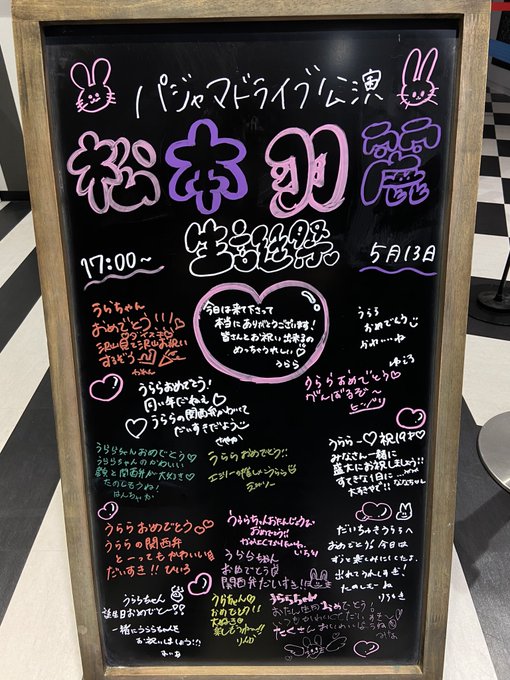 パジャマドライブ公演
松本羽麗
生誕祭
17:00~
5月13日
今日は来て下さって
本当にありがとうございます!
皆さんとお祝い出来るの
めっちゃうれしい♡
うらら
うらちゃん
おめでとう!!!
ダイスキ
沢山見て沢山お祝い
するぞう
かれん
うらら
おめでとう
ゆころ
うららおめでとう!
同い年だねえ
うららの関西弁かわいくて
だいすきだよう
うららおめでとう♡
がんばるぞ~
うららちゃんおめでとう♡
うららちゃんのかわいい
顔と関西弁が大好き♡
たのしもうね!
はんちゃんか
うららおめでとう!!
うらら〜♡祝19才♡
みなさん一緒に
盛大にお祝しましょう!!
すてきな1日に
大好きです!!
うららおめでとう♡
うららの関西弁
と〜ってもかわいい
だいすき!!ひいろ
うららちゃんおたんじょうび
おめでとう!!
いちり
うららちゃん
おめでとう
関西弁だいすき!!
だいちゅきうららへ
おめでとう!今日は
ずっと楽しみにしてたよ
出れてうれしすぎ、
たのしむーね
うららちゃん
誕生日おめでと〜??
一緒にうららちゃんを
お祝いしましょう!!
うらちゃん♡
おめでとう!!
大好き
楽しもうね〜!!
りんか
うららちゃん
おたん生日おめでとう!
いつもかわいくてだいすき〜
たくさんおいわいしようね